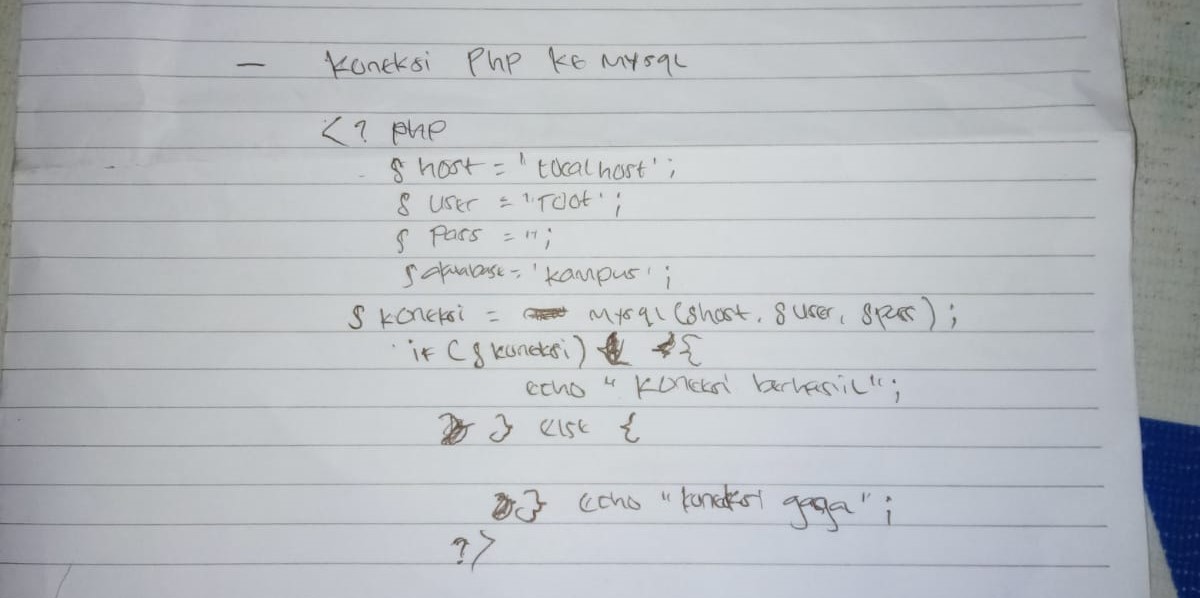 - Koneksi Php ke Mysql
<? php
$ host = 'localhost';
$ user = 'root';
$ pass = '';
$ database = 'kampus';
$ koneksi = Mysql ($host, $user, $pass);
if ($ koneksi) {
echo "Koneksi berhasil";
} else {
} echo "koneksi gaga";
?>